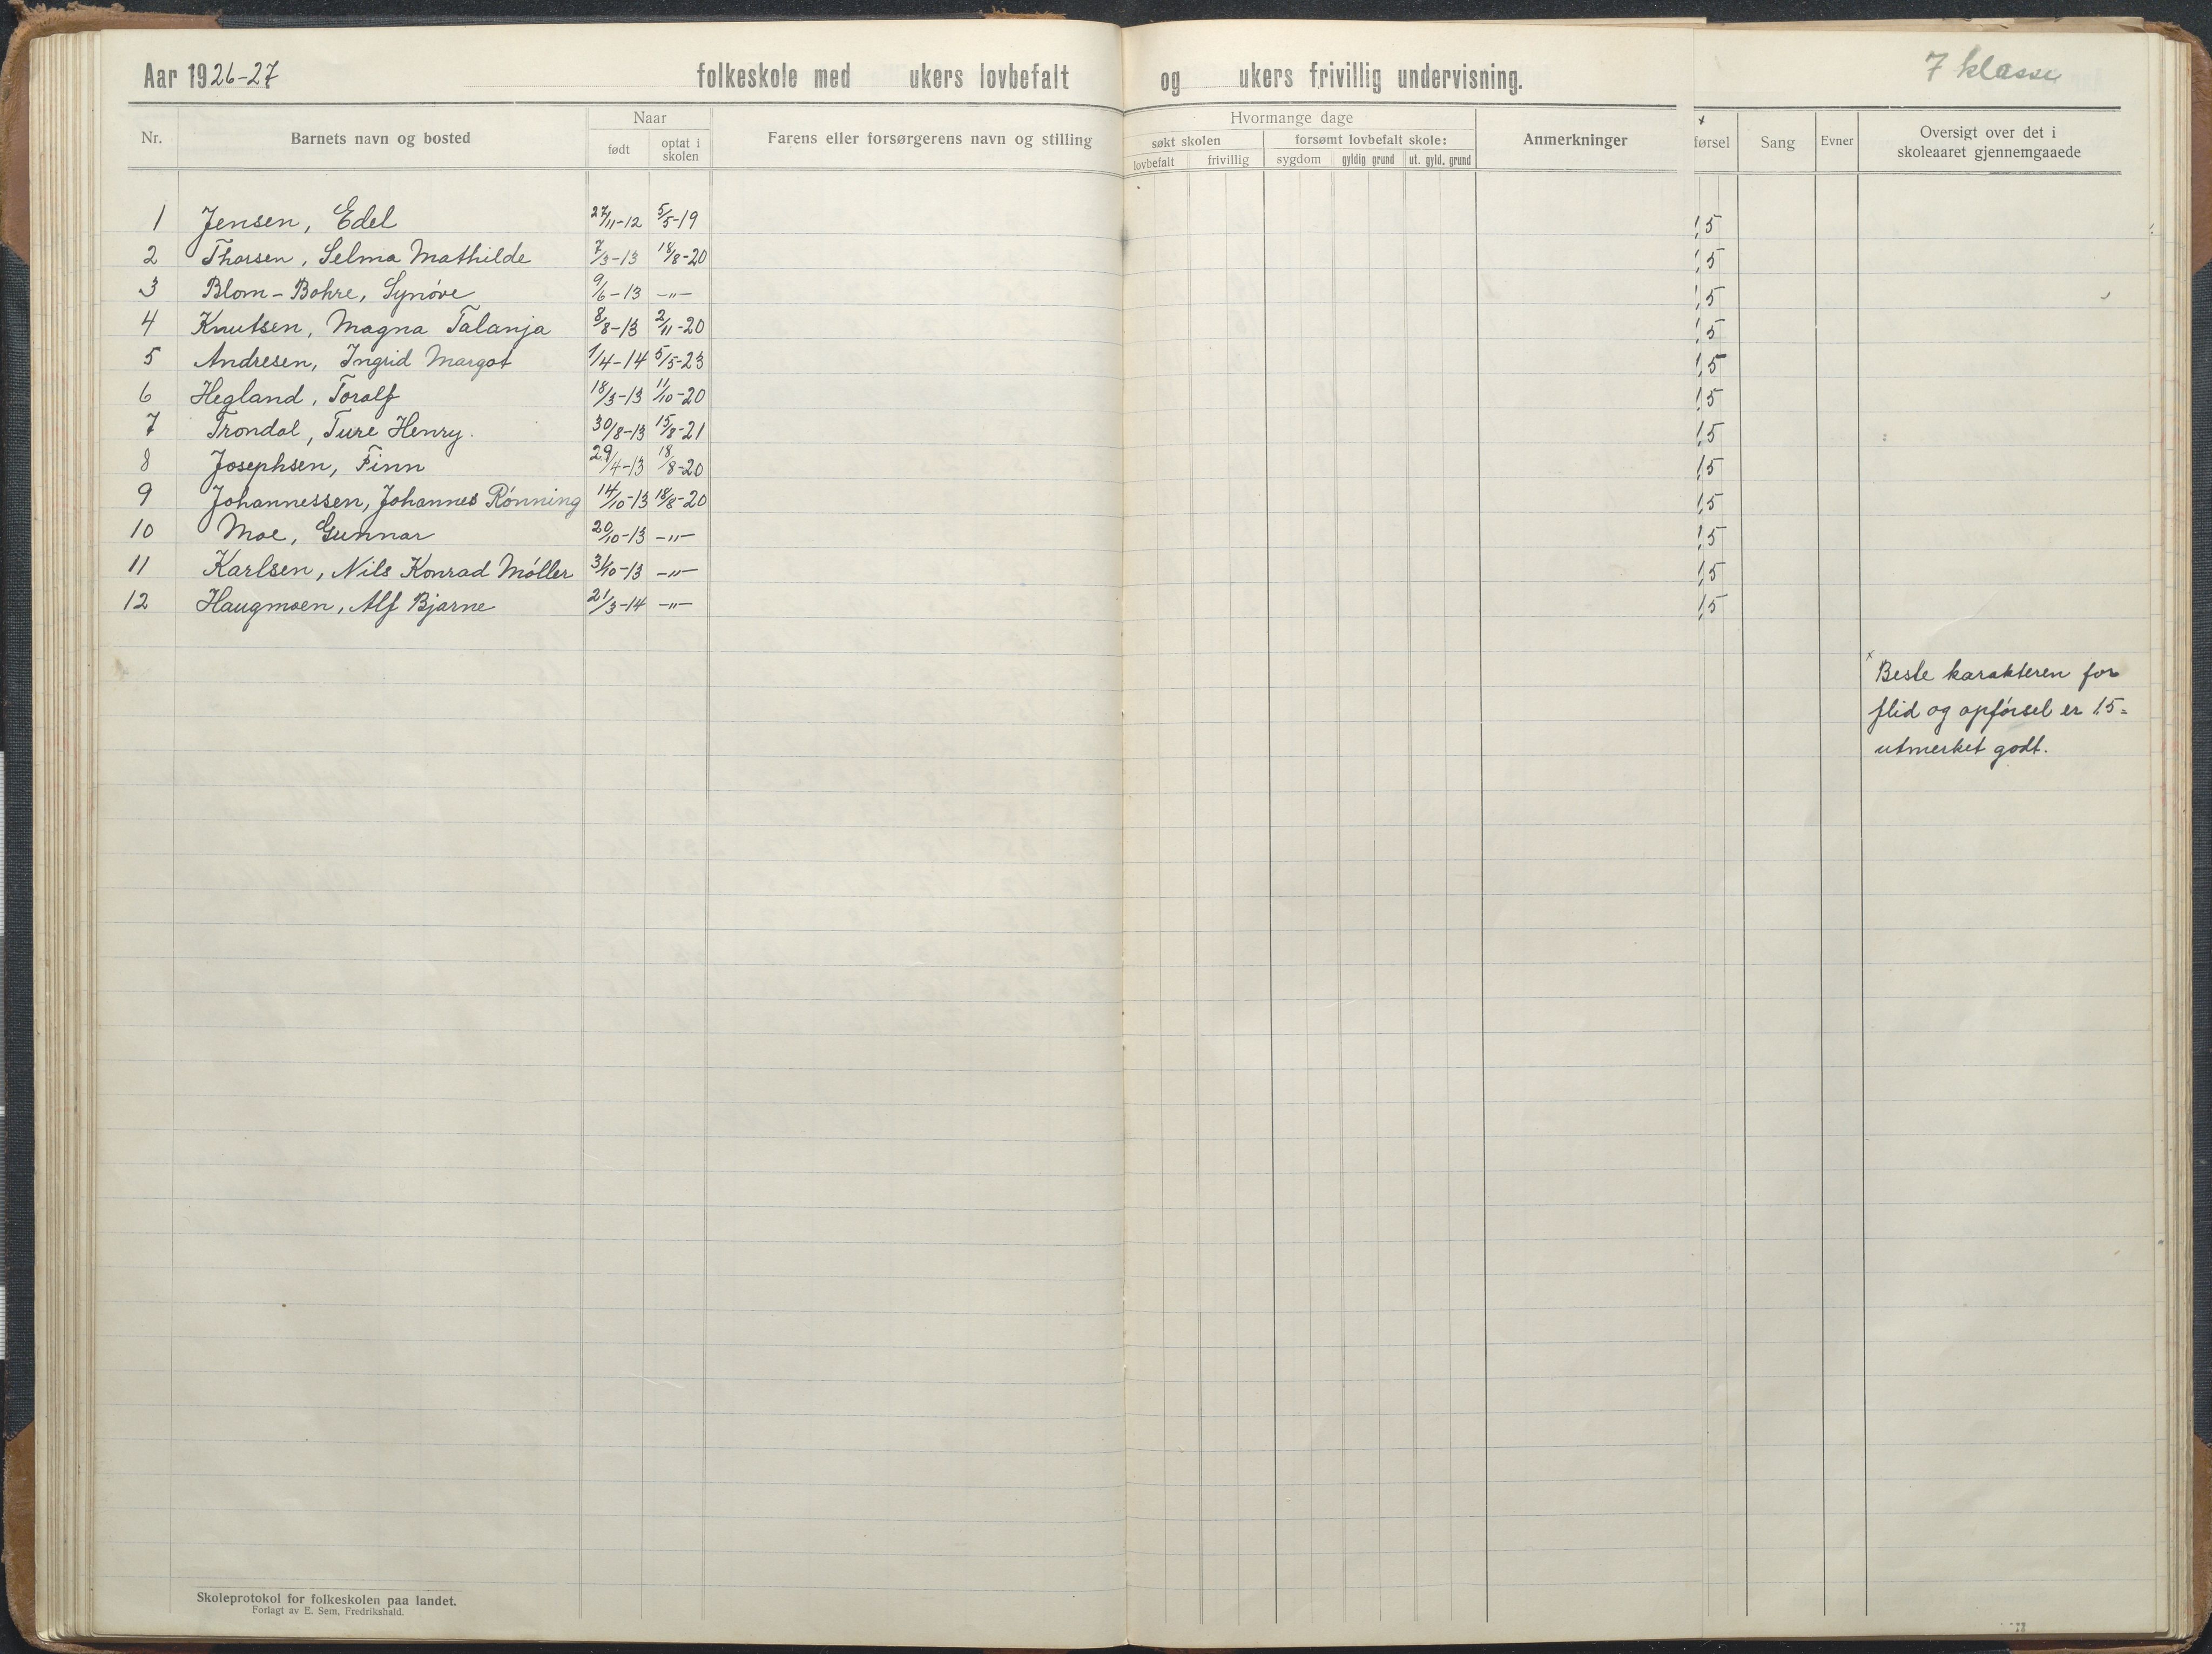 Aar 1926-27 folkeskole med ukers lovbefalt og ukers frivillig undervisning. 7 klasse
Nr. Barnets navn og bosted Naar født optat i skolen Farens eller forsørgerens navn og stilling Hvormange dage søkt skolen lovbefalt frivillig forsømt lovbefalt skole: sygdom gyldig grund ut. gyld. grund Anmerkninger førsel Sang Evner Oversigt over det i skoleaaret gjennemgaaede
1 Jensen, Edel 27/11-12 5/5-19 1,5
2 Thorsen, Selma Mathilde 7/3-13 18/8-20 1,5
3 Blom-Bohre, Synøve 9/6-13 -"- 1,5
4 Knutsen, Magna Talanja 8/8-13 2/11-20 1,5
5 Andresen, Ingrid Margot 1/4-14 5/5-23 1,5
6 Hegland, Toralf 18/3-13 11/10-20 1,5
7 Trondal, Ture Henry. 30/8-13 15/8-21 1,5
8 Josephsen, Finn 29/4-13 18/8-20 1,5
9 Johannessen, Johannes Rønning 14/10-13 18/8-20 1,5
10 Moe, Gunnar 20/10-13 -"- 1,5
11 Karlsen, Nils Konrad Møller 31/10-13 -"- 1,5
12 Haugmoen, Alf Bjarne 21/3-14 -"- 1,5
x Beste karakteren for
flid og opførsel er 1.5 =
utmerket godt.
Skoleprotokol for folkeskolen paa landet.
Forlagt av E. Sem, Fredrikshald.